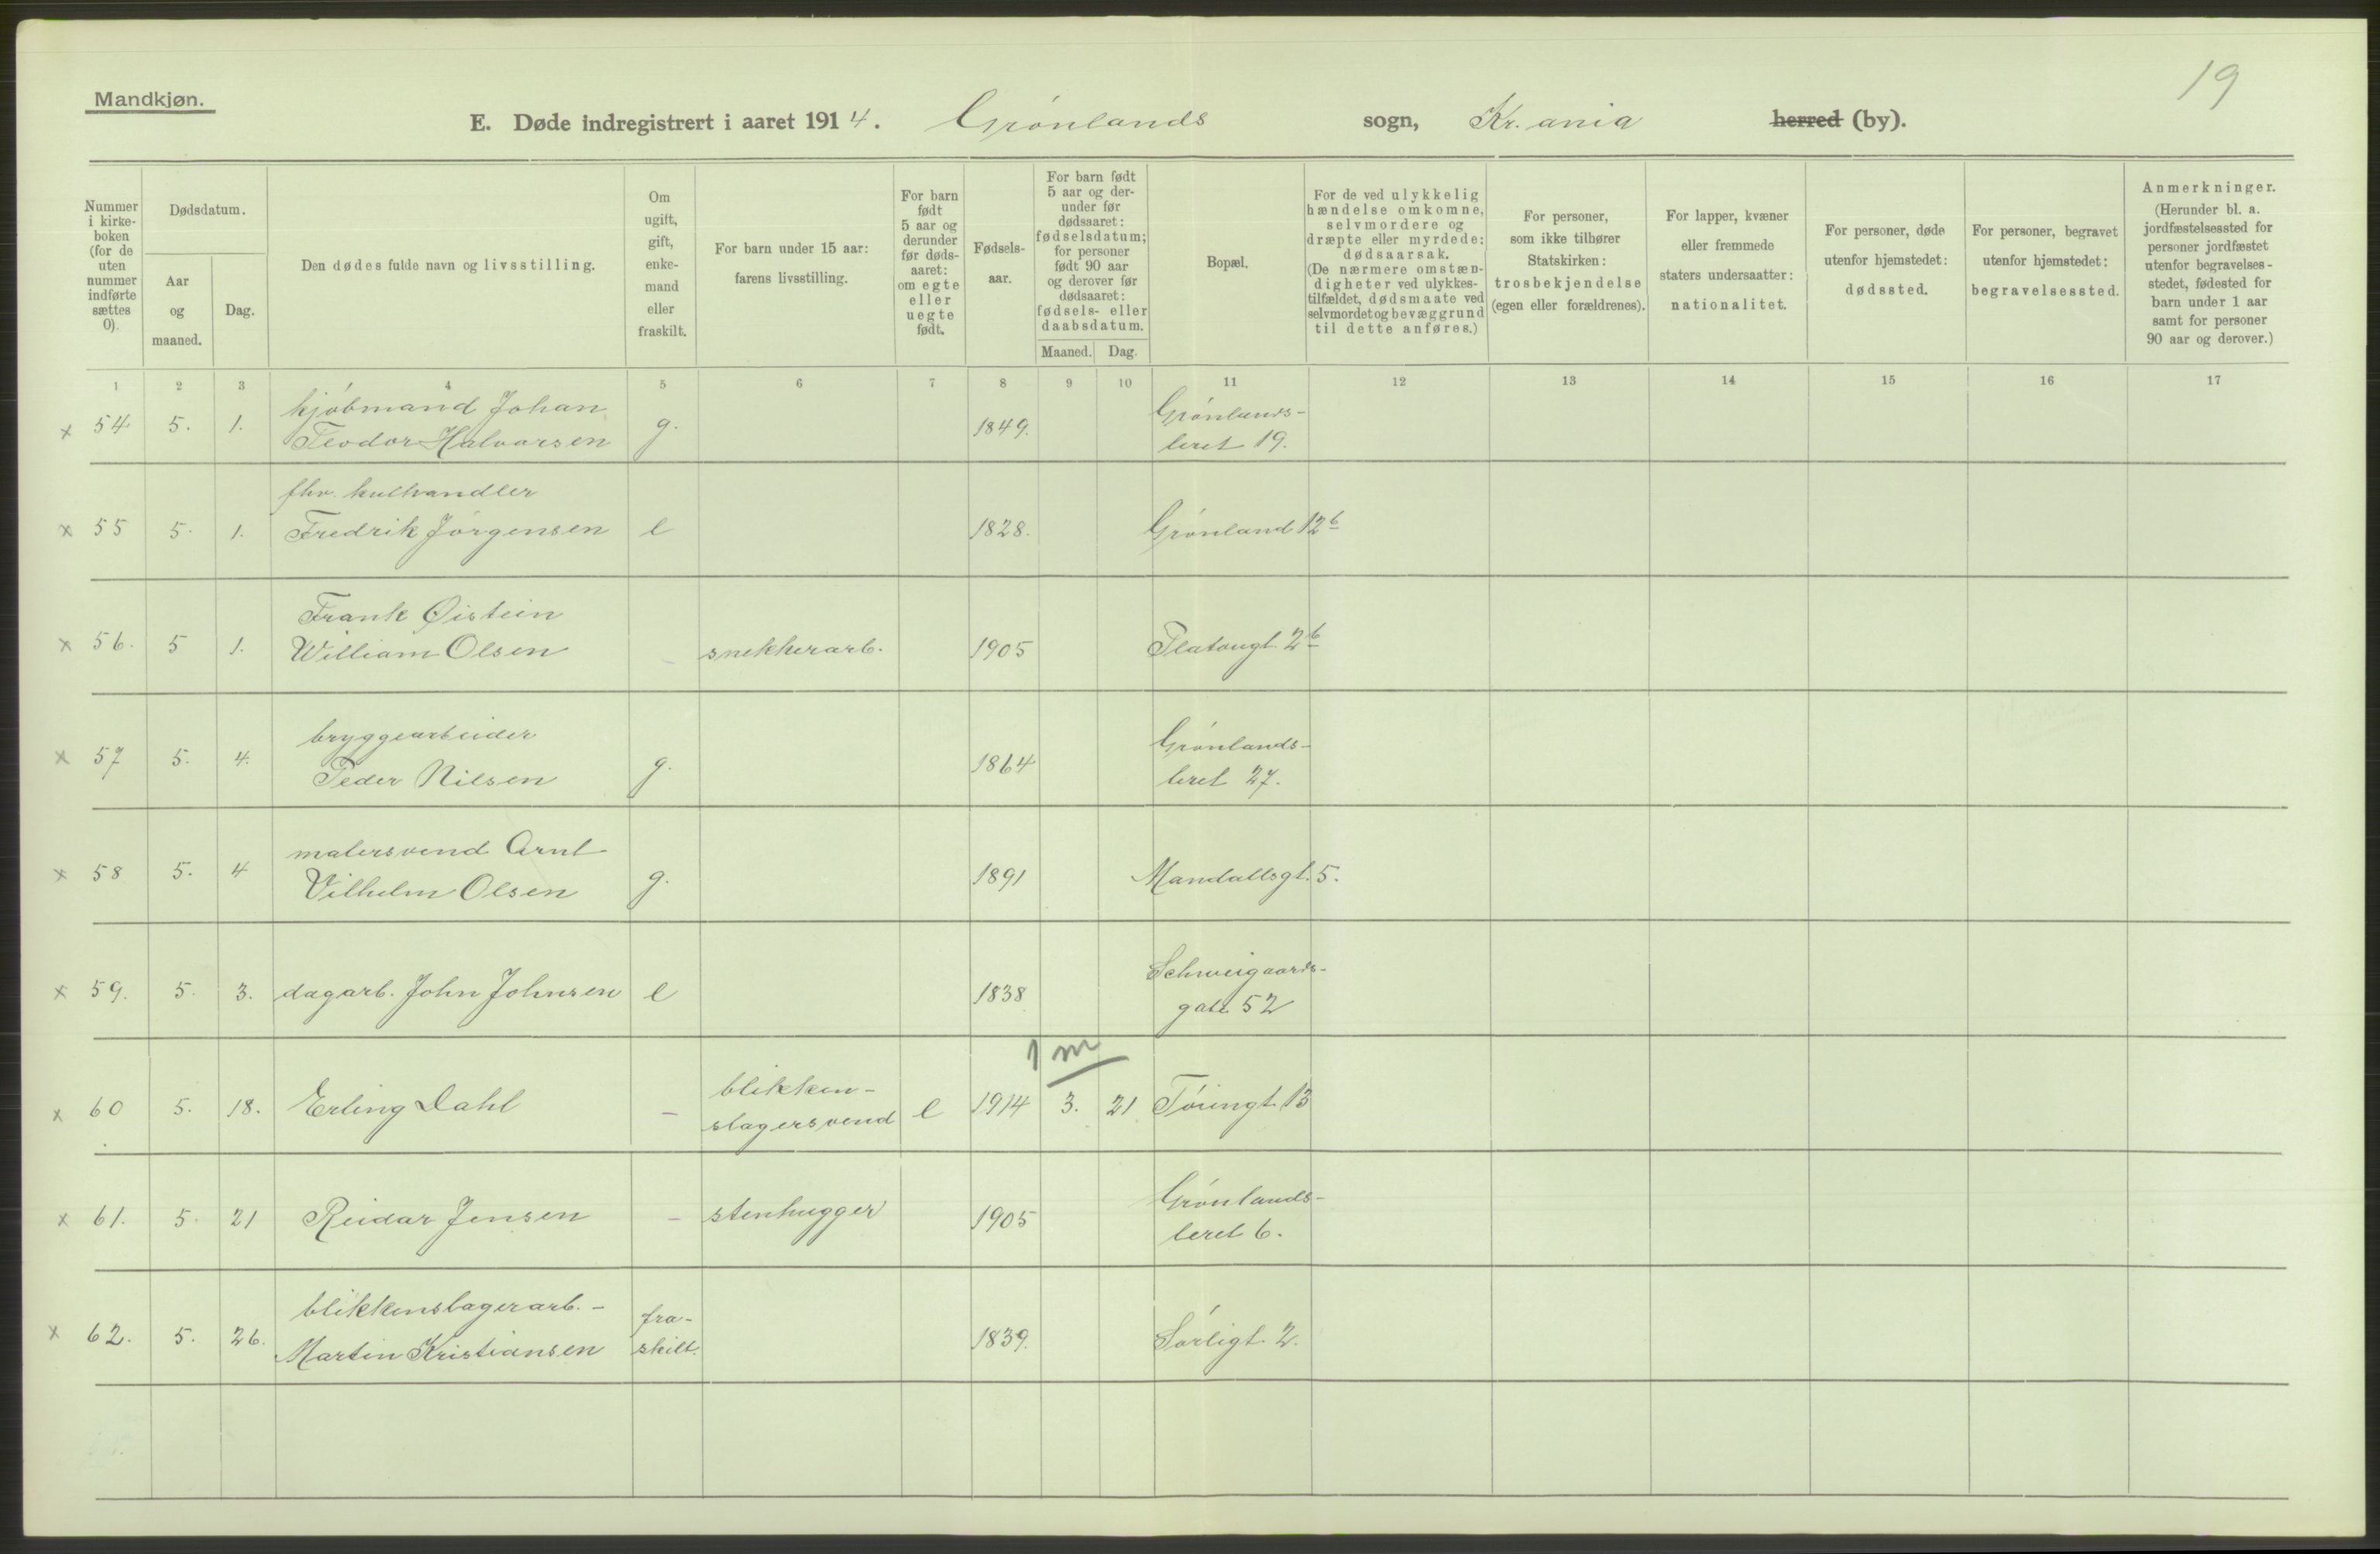 19
Mandkjøn.
E. Døde indregistrert i aaret 1914. Grønlands sogn, Kr.ania herred (by).
Nummer i kirke-boken (for de uten nummer indførte sættes 0).
Dødsdatum.
Aar og maaned.
Dag.
Den dødes fulde navn og livsstilling.
Om ugift, gift, enke-mand eller fraskilt.
For barn under 15 aar: farens livsstilling.
For barn født 5 aar og derunder før døds-aaret: om egte eller uegte født.
Fødsels-aar.
For barn født 5 aar og der-under før dødsaaret: fødselsdatum; for personer født 90 aar og derover før dødsaaret: fødsels- eller daabsdatum.
Maaned. Dag.
Bopæl.
For de ved ulykkelig hændelse omkomne, selvmordere og dræpte eller myrdede: dødsaarsak. (De nærmere omstæn-digheter ved ulykkes-tilfældet, dødsmaate ved selvmordet og bevæggrund til dette anføres.)
For personer, som ikke tilhører Statskirken: trosbekjendelse (egen eller forældrenes).
For lapper, kvæner eller fremmede staters undersaatter: nationalitet.
For personer, døde utenfor hjemstedet: dødssted.
For personer, begravet utenfor hjemstedet: begravelsessted.
Anmerkninger. (Herunder bl. a. jordfæstelsessted for personer jordfæstet utenfor begravelses-stedet, fødested for barn under 1 aar samt for personer 90 aar og derover.)
1 2 3 4 5 6 7 8 9 10 11 12 13 14 15 16 17
kjøbmand Johan Grønlands-
x 54 5. 1. Teodor Halvorsen g. 1849. leret 19.
fhv. kulhandler
x 55 5. 1. Fredrik Jørgensen e 1828. Grønland 12b
Frank Øistein
x 56. 5 1. William Olsen - snekkerarb. 1905 Platougt. 2b
bryggearbeider Grønlands-
x 57 5. 4. Peder Nilsen g. 1864 leret 27.
malersvend Arnt
x 58 5. 4 Vilhelm Olsen g. 1891 Mandallsgt. 5.
Schweigaards-
x 59. 5. 3. dagarb. John Johnsen e 1838 gate 52
1 m
blikken-
x 60 5. 18. Erling Dahl - slagersvend e 1914 3. 21 Tøiengt. 13
Grønlands-
x 61. 5. 21 Reidar Jensen - stenhugger 1905 leret 6.
blikkenslagerarb. - fra-
x 62. 5. 26. Martin Kristiansen skilt. 1839. Sørligt. 2.